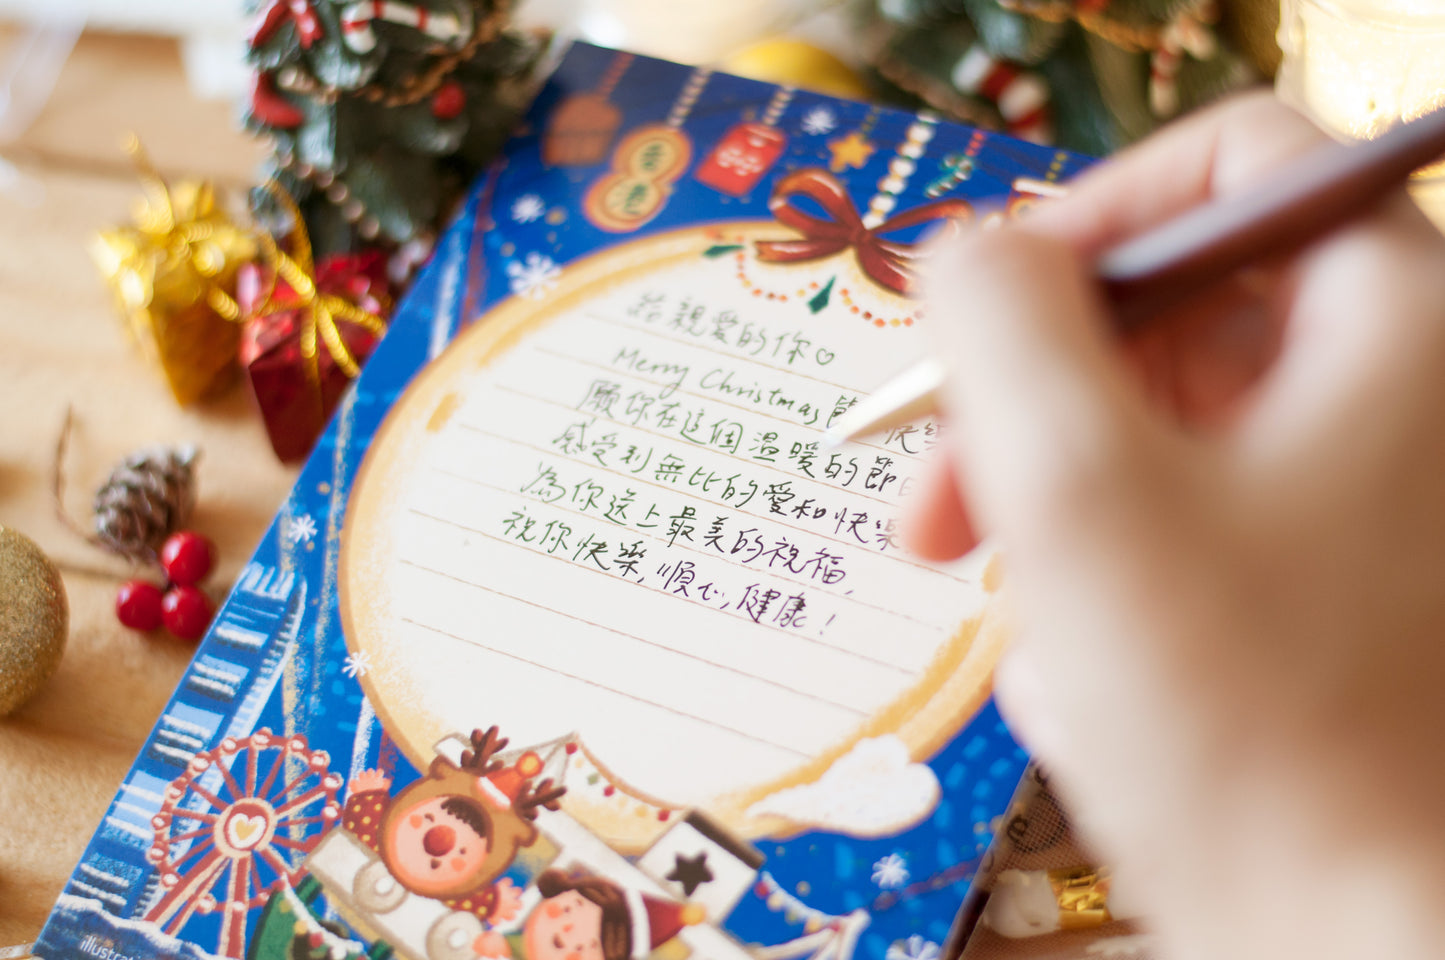 香港
給親愛的你♡
Merry Christmas 節 快樂
願你在這個溫暖的節日
感受到無比的愛和快樂
為你送上最美的祝福,
祝你快樂,順心,健康!
illustrati